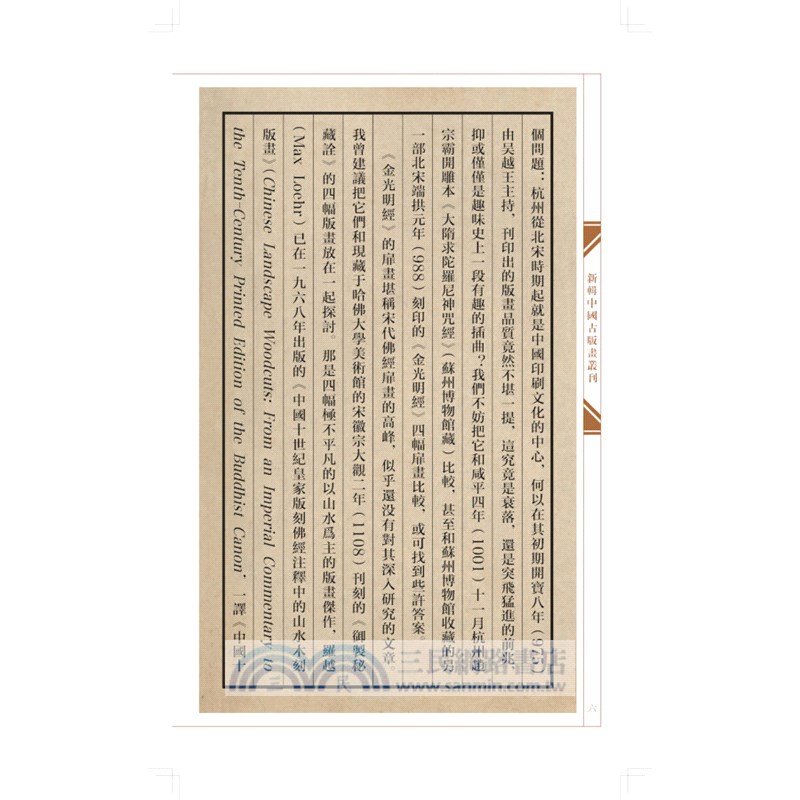 個問題：杭州從北宋時期起就是中國印刷文化的中心，何以在其初期開寶八年（975）
由吳越王主持，刊印出的版畫品質竟然不堪一提，這究竟是衰落，還是突飛猛進的前兆，
抑或僅僅是趣味史上一段有趣的插曲？我們不妨把它和咸平四年（1001）十一月杭州趙
宗霸開雕本《大隋求陀羅尼神咒經》（蘇州博物館藏）比較，甚至和蘇州博物館收藏的另
一部北宋端拱元年（988）刻印的《金光明經》四幅扉畫比較，或可找到些許答案。
《金光明經》的扉畫堪稱宋代佛經扉畫的高峰，似乎還没有對其深入研究的文章。
我曾建議把它們和現藏于哈佛大學美術館的宋徽宗大觀二年（1108）刊刻的《御製秘
藏詮》的四幅版畫放在一起探討。那是四幅極不平凡的以山水爲主的版畫傑作，羅越
（Max Loehr）已在一九六八年出版的《中國十世紀皇家版刻佛經注釋中的山水木刻
版畫》（Chinese Landscape Woodcuts: From an Imperial Commentary to
the Tenth-Century Printed Edition of the Buddhist Canon，一譯《中國十
新輯中國古版畫叢刊
六
三民網路書店
www.sanmin.com.tw
三民